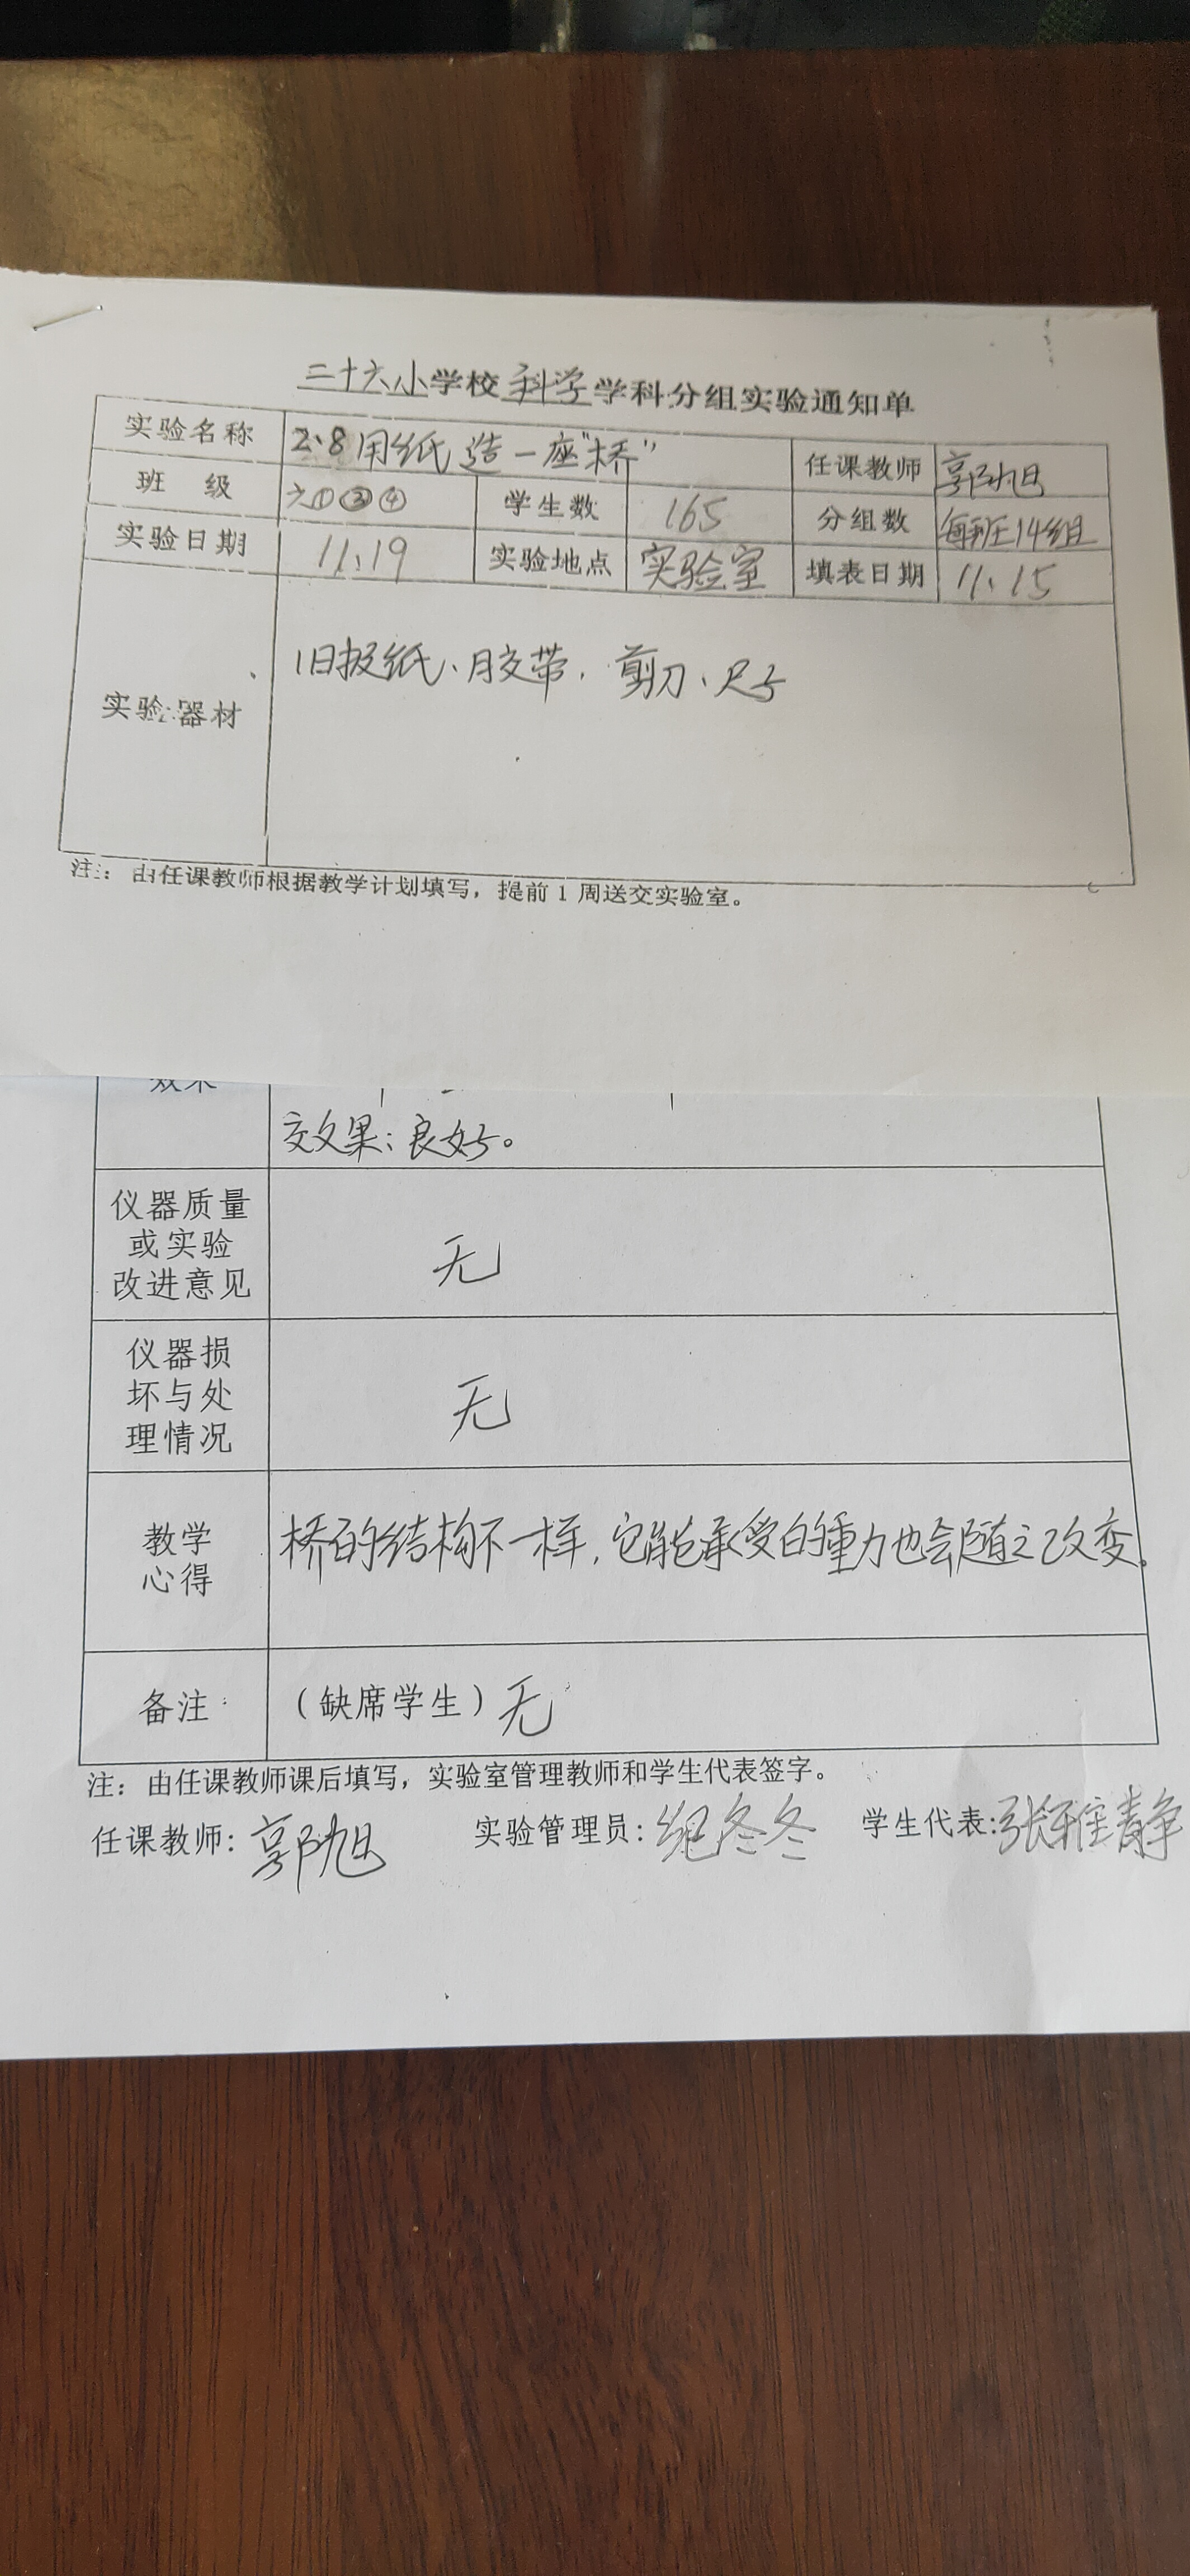 三十六小学校科学学科分组实验通知单
实验名称 2.8用纸造一座"桥" 任课教师 郭旭
班 级 六①③④ 学生数 165 分组数 每班14组
实验日期 11.19 实验地点 实验室 填表日期 11.15
实验器材 旧报纸、胶带、剪刀、尺子
注：由任课教师根据教学计划填写，提前1周送交实验室。
效果
效果：良好。
仪器质量
或实验
改进意见
无
仪器损
坏与处
理情况
无
教学
心得
桥的结构不一样，它能承受的重力也会随之改变。
备注 （缺席学生）无
注：由任课教师课后填写，实验室管理教师和学生代表签字。
任课教师：郭旭 实验管理员：冬冬 学生代表：张雅静